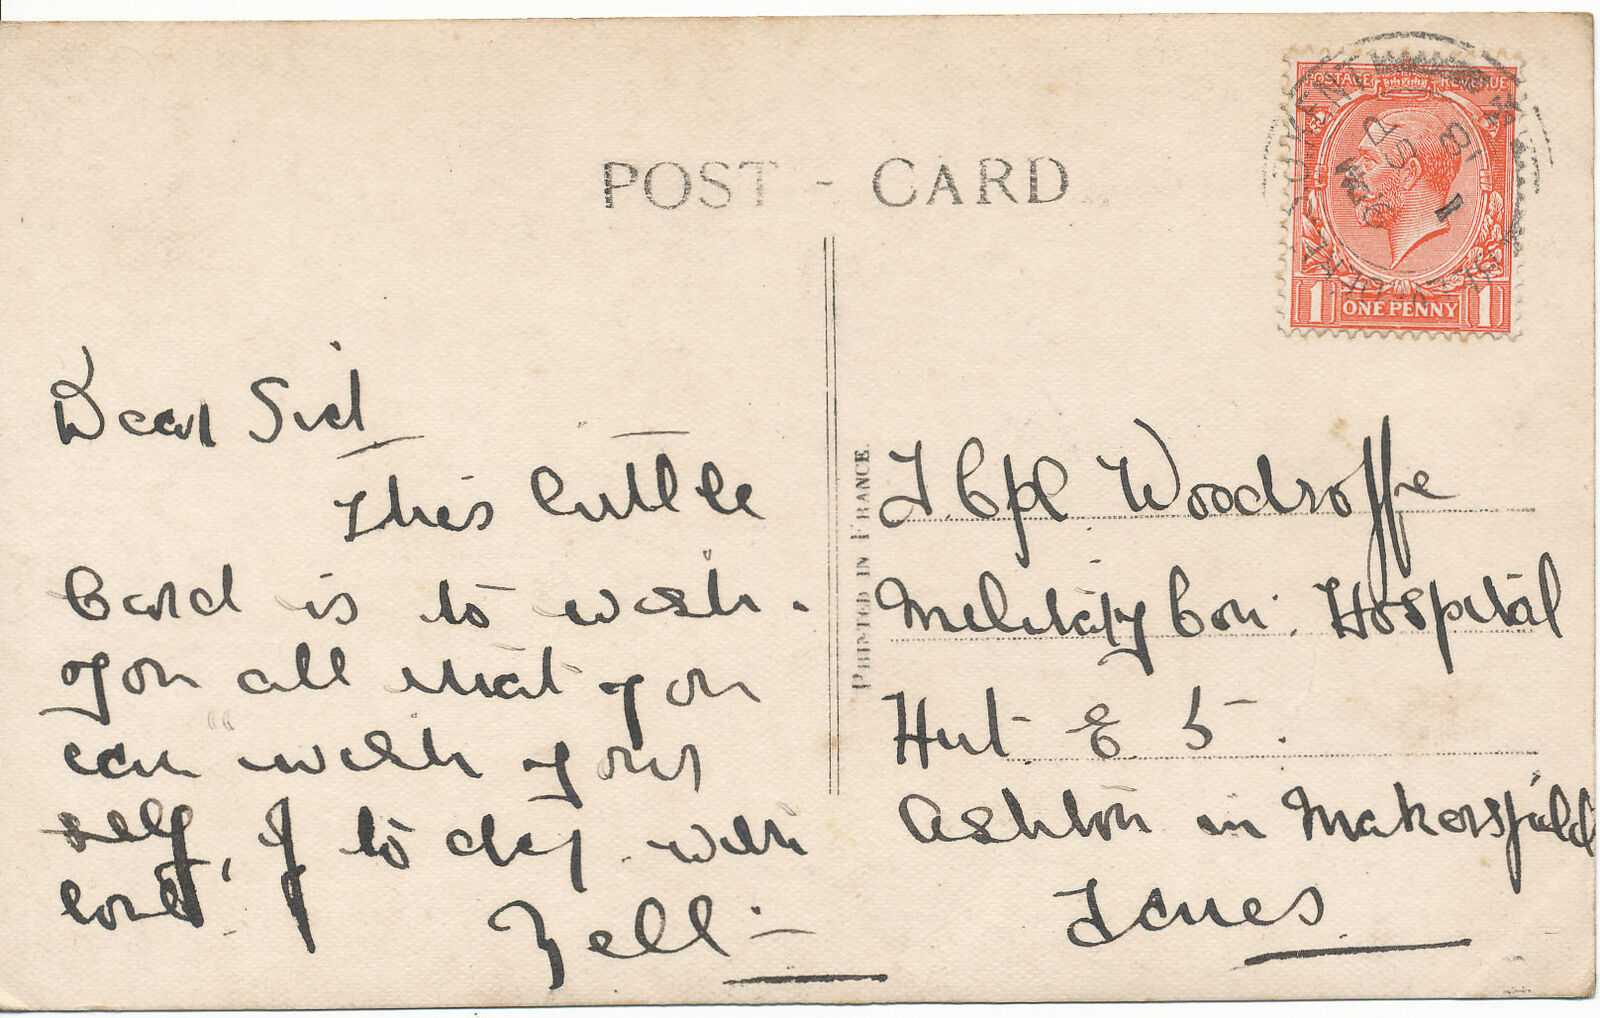 POST - CARD
POSTAGE REVENUE
1 ONE PENNY 1
SP
18
PRINTED IN FRANCE.
Dear Sid
This little
Card is to wish.
you all that you
can wish your
self, to day with
love
Nell
L Cpl Woodroffe
Military Con: Hospital
Hut E 5.
Ashton in Makersfield
Lancs